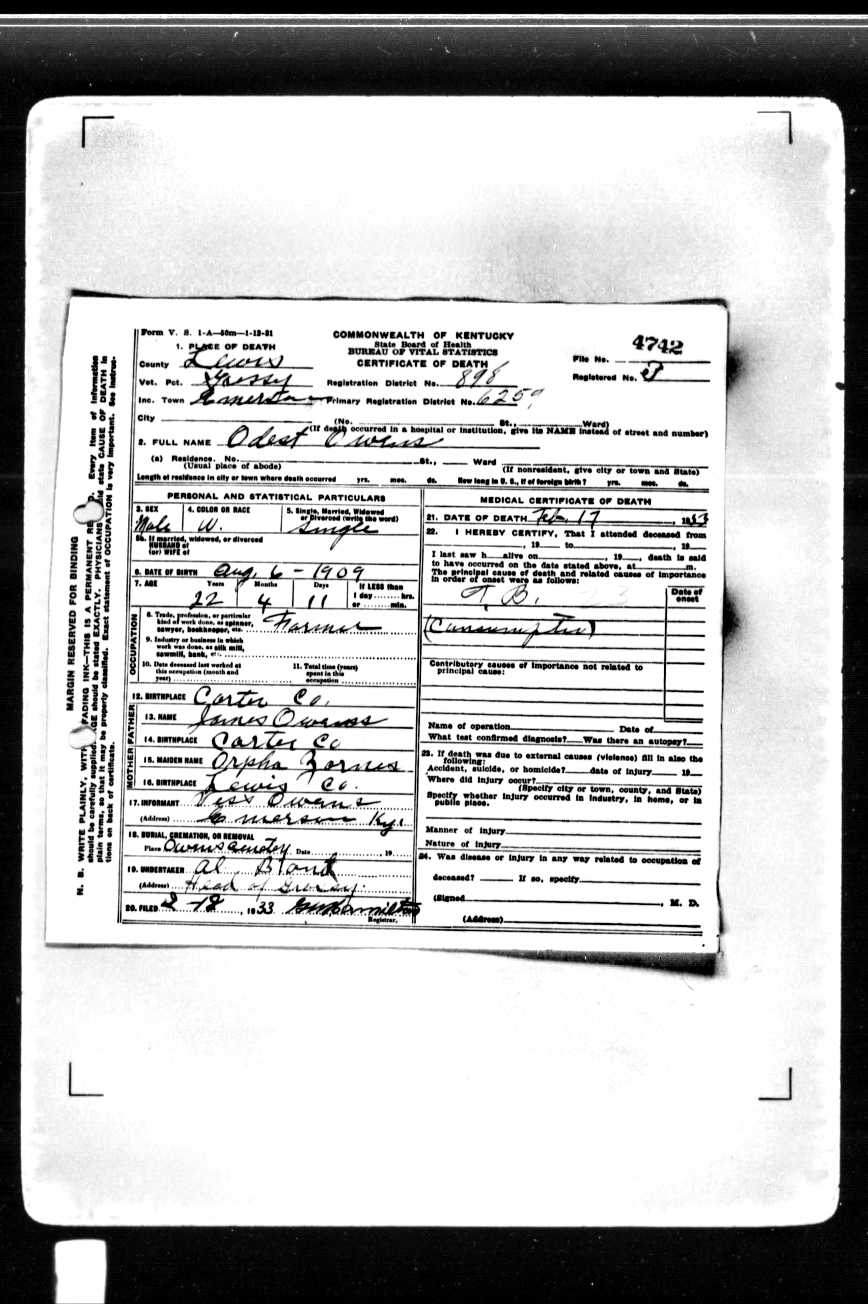 Form V. S. 1-A—50m—1-12-31
COMMONWEALTH OF KENTUCKY
State Board of Health
BUREAU OF VITAL STATISTICS
CERTIFICATE OF DEATH
File No. 4742
Registered No.
1. PLACE OF DEATH
County Lewis
Vot. Pct. Grassy Registration District No. 898
Inc. Town Emerson Primary Registration District No. 6259
City (No. St., Ward)
(If death occurred in a hospital or institution, give its NAME instead of street and number)
2. FULL NAME Odest Owens
(a) Residence. No. St., Ward
(Usual place of abode) (If nonresident, give city or town and State)
Length of residence in city or town where death occurred yrs. mos. ds. How long in U. S., if of foreign birth? yrs. mos. ds.
PERSONAL AND STATISTICAL PARTICULARS
3. SEX 4. COLOR OR RACE 5. Single, Married, Widowed or Divorced (write the word)
Male W. Single
5b. If married, widowed, or divorced
HUSBAND of
(or) WIFE of
6. DATE OF BIRTH Aug. 6 - 1909
7. AGE Years Months Days If LESS than
1 day hrs.
or min.
22 4 11
OCCUPATION
8. Trade, profession, or particular kind of work done, as spinner, sawyer, bookkeeper, etc. Farmer
9. Industry or business in which work was done, as silk mill, sawmill, bank, etc.
10. Date deceased last worked at this occupation (month and year)
11. Total time (years) spent in this occupation
12. BIRTHPLACE Carter Co.
FATHER
13. NAME James Owens
14. BIRTHPLACE Carter Co
MOTHER
15. MAIDEN NAME Orpha Zornes
16. BIRTHPLACE Lewis Co.
17. INFORMANT Owens
(Address) Emerson Ky.
18. BURIAL, CREMATION, OR REMOVAL
Place Owens cemetery Date , 19
19. UNDERTAKER Al. Bland
(Address) Head of Grassy.
20. FILED 2-18, 1933 Hamilton
Registrar.
MEDICAL CERTIFICATE OF DEATH
21. DATE OF DEATH Feb. 17, 1933
22. I HEREBY CERTIFY, That I attended deceased from
, 19 to , 19
I last saw h alive on , 19 , death is said
to have occurred on the date stated above, at m.
The principal cause of death and related causes of importance
in order of onset were as follows:
Date of onset
T. B. 23
(Consumption)
Contributory causes of importance not related to
principal cause:
Name of operation Date of
What test confirmed diagnosis? Was there an autopsy?
23. If death was due to external causes (violence) fill in also the
following:
Accident, suicide, or homicide? date of injury 19
Where did injury occur?
(Specify city or town, county, and State)
Specify whether injury occurred in industry, in home, or in
public place.
Manner of injury
Nature of injury
24. Was disease or injury in any way related to occupation of
deceased? If so, specify
(Signed , M. D.
(Address)
MARGIN RESERVED FOR BINDING